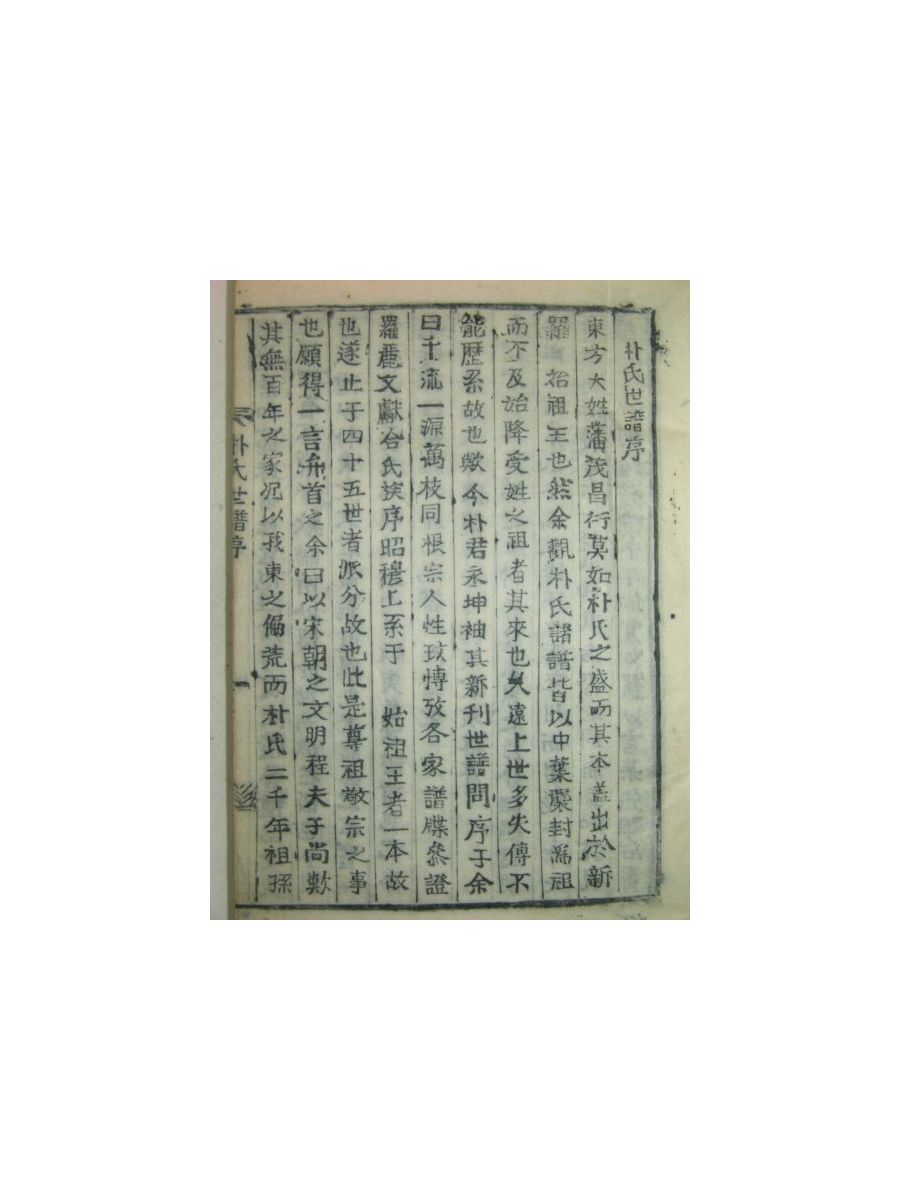 朴氏世譜序
東方大姓藩茂昌衍莫如朴氏之盛而其本盖出於新
羅 始祖王也然余觀朴氏諸譜皆以中葉襲封爲祖
而不及始降受姓之祖者其來也久遠上世多失傳不
能歷系故也歟今朴君永坤袖其新刊世譜問序于余
曰千流一源萬枝同根宗人性玟博攷各家譜牒叅證
羅麗文獻合氏族序昭穆上系于 始祖王者一本故
也遂止于四十五世者派分故也此是尊祖敬宗之事
也願得一言弁首之余曰以宋朝之文明程夫子尚歎
其無百年之家况以我東之偏荒而朴氏二千年祖孫
朴氏世譜序
一